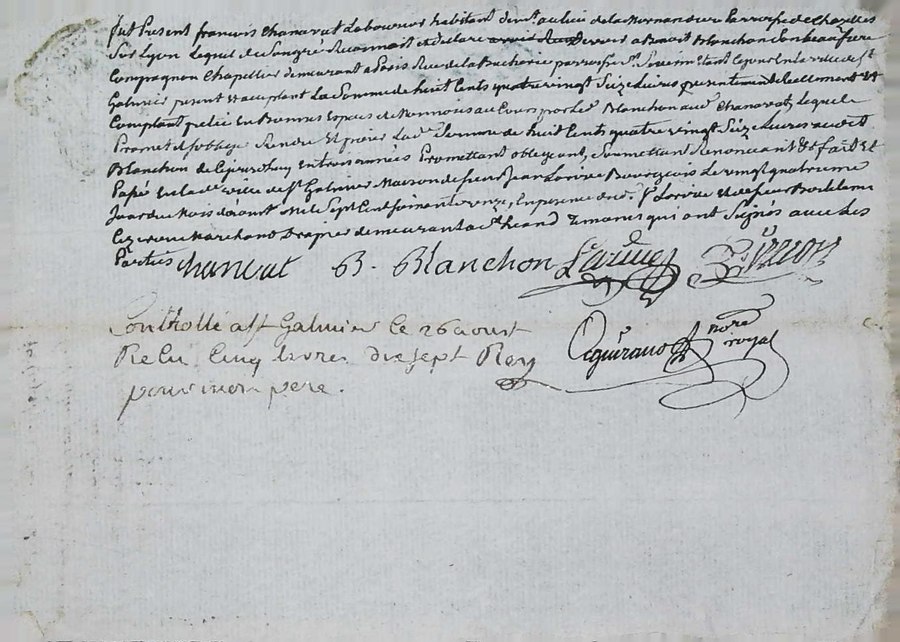 fut Present francois Chanavat Laboureur habitant du lieu de la Parroisse de Chazelles
Sur Lyon Lequel de Son gré Reconnoit et declare devoir a Benoit Blanchon Son beau frere
Compagnon Chapellier demeurant a Paris Rue de la Bucherie parroisse St. Severin Estant Ce jour En la ville de St
Galmier present et acceptant La Somme de huit Cents quatre vingt Seize Livres presentement Reellement Et
Comptant En Bonnes Especes de Monnois au Cours par led Blanchon aud Chanavat, Lequel
Promet et s'oblige Rendre Et payer Lad. Somme de huit Cents quatre vingt Seize Livres audit
Blanchon de Ce jourdhuy en trois années Promettant obligeant, Soumettant Renonceant &t fait Et
Passé En lad. ville de St Galmier Maison de Sieur Jean Bourgeois Le vingt quatrieme
Jour du Mois d'aoust Mil Sept Cent Soixante onze, En presence dud. Sr et de Sieur
Marchand Drapier demeurant a qui ont Signés avec Les
Parties chanavat B. Blanchon
Controllé a St Galmier le 26 aoust
Relu Cinq livres dix sept
pour mon pere.
nore
royal